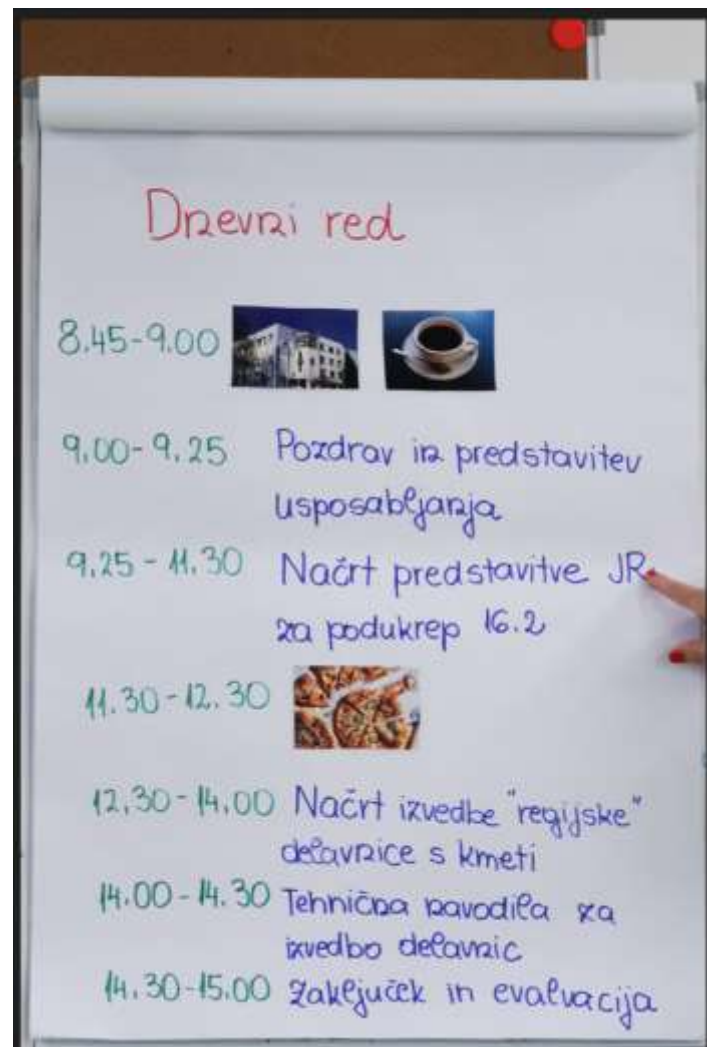 Dnevni red
8.45-9.00
9.00-9.25 Pozdrav in predstavitev
usposabljanja
9.25-11.30 Načrt predstavitve JR
za podukrep 16.2
11.30-12.30
12.30-14.00 Načrt izvedbe "regijske"
delavnice s kmeti
14.00-14.30 Tehnična navodila za
izvedbo delavnic
14.30-15.00 Zaključek in evalvacija